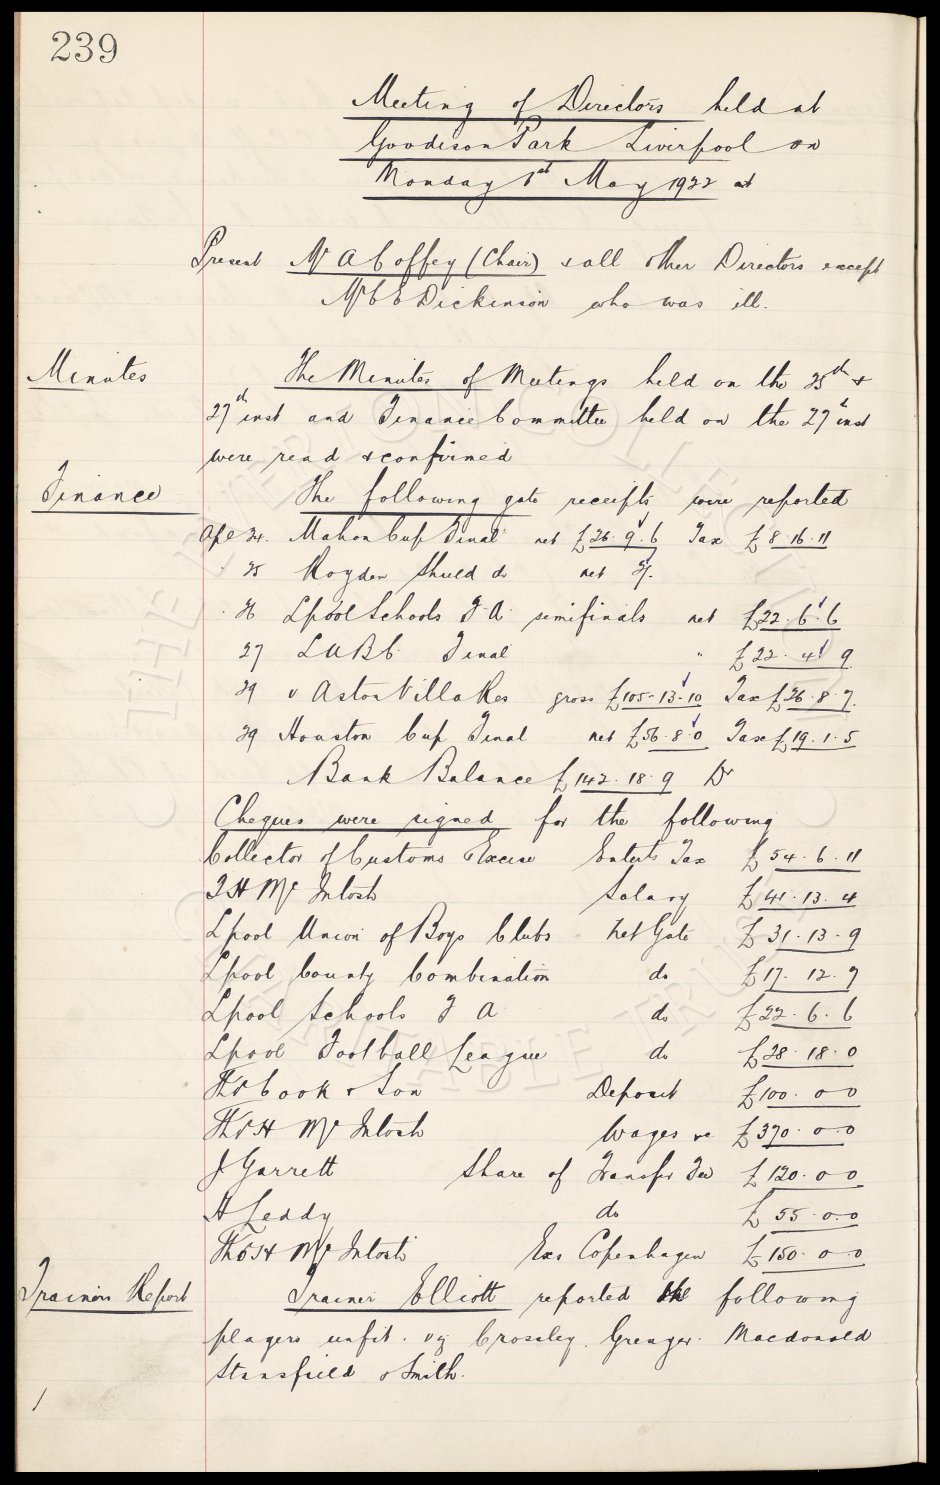 239
Meeting of Directors held at
Goodison Park Liverpool on
Monday 1st May 1922 at
Present Mr A Coffey (Chair) & all other Directors except
Mr C E Dickinson who was ill.
Minutes The Minutes of Meetings held on the 25th &
27th inst and Finance Committee held on the 27th inst
were read & confirmed
Finance The following gate receipts were reported
Apl 24. Mahon Cup Final net £26.9.6 Tax £8.16.11
" 25 Royden Shield do net
" 26 Lpool Schools F.A. semifinals net £22.6.6
27 LUBC Final " £22.4.9
29 v Aston Villa Res gross £105-13-10 Tax £26.8.7.
29 Houston Cup Final net £56.8.0 Tax £19.1.5
Bank Balance £142.18.9 Dr
Cheques were signed for the following
Collector of Customs & Excise Enterts Tax £54.6.11
T H McIntosh Salary £41.13.4
Lpool Union of Boys Clubs Net Gate £31.13.9
Lpool County Combination do £17.12.7
Lpool Schools F A do £22.6.6
Lpool Football League do £28.18.0
Thos Cook & Son Deposit £100.0-0
Thos H McIntosh Wages &c £370.0-0
J Garrett Share of Transfer Fee £120.0-0
H Leddy do £55.0.0
Thos H McIntosh Exs Copenhagen £150.0-0
Trainers Report Trainer Elliott reported the following
players unfit. viz Crossley. Grenyer. Macdonald
Stansfield & Smith.
THE EVERTON COLLECTION
CHARITABLE TRUST